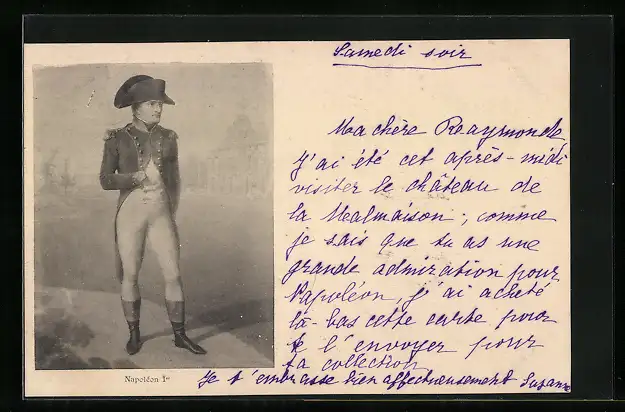 Samedi soir
Ma chère Reaymonde
J'ai été cet après-midi
visiter le château de
la Malmaison, comme
je sais que tu as une
grande admiration pour
Napoléon, j'ai acheté
là-bas cette carte pour
te l'envoyer pour
ta collection
Je t'embrasse bien affectueusement Suzanne
Napoléon Ier